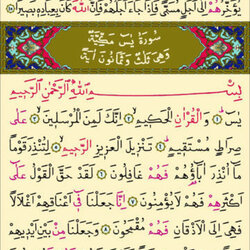 يُؤَخِّرُهُمْ إِلَىٰ أَجَلٍ مُسَمًّى فَإِذَا جَاءَ أَجَلُهُمْ فَإِنَّ اللَّهَ كَانَ بِعِبَادِهِ بَصِيرًا
سُورَةُ يٰسٓ مَكِّيَّةٌ
وَهِيَ ثَلَاثٌ وَثَمَانُونَ آيَةً
بِسْمِ اللَّهِ الرَّحْمَٰنِ الرَّحِيمِ
يٰسٓ ﴿١﴾ وَالْقُرْآنِ الْحَكِيمِ ﴿٢﴾ إِنَّكَ لَمِنَ الْمُرْسَلِينَ ﴿٣﴾ عَلَىٰ
صِرَاطٍ مُسْتَقِيمٍ ﴿٤﴾ تَنْزِيلَ الْعَزِيزِ الرَّحِيمِ ﴿٥﴾ لِتُنْذِرَ قَوْمًا
مَا أُنْذِرَ آبَاؤُهُمْ فَهُمْ غَافِلُونَ ﴿٦﴾ لَقَدْ حَقَّ الْقَوْلُ عَلَىٰ
أَكْثَرِهِمْ فَهُمْ لَا يُؤْمِنُونَ ﴿٧﴾ إِنَّا جَعَلْنَا فِي أَعْنَاقِهِمْ
فَهِيَ إِلَى الْأَذْقَانِ فَهُمْ مُقْمَحُونَ ﴿٨﴾ وَجَعَلْنَا مِنْ بَيْنِ أَيْدِيهِمْ